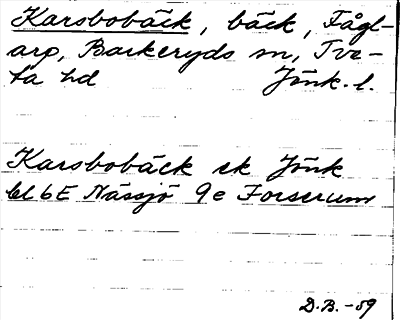 Karsbobäck, bäck, Fågl-
arp, Barkeryds sn, Tve-
ta hd Jönk. l.
Karsbobäck ek Jönk
bl 6E Nässjö 9e Forserum
D.B. -59